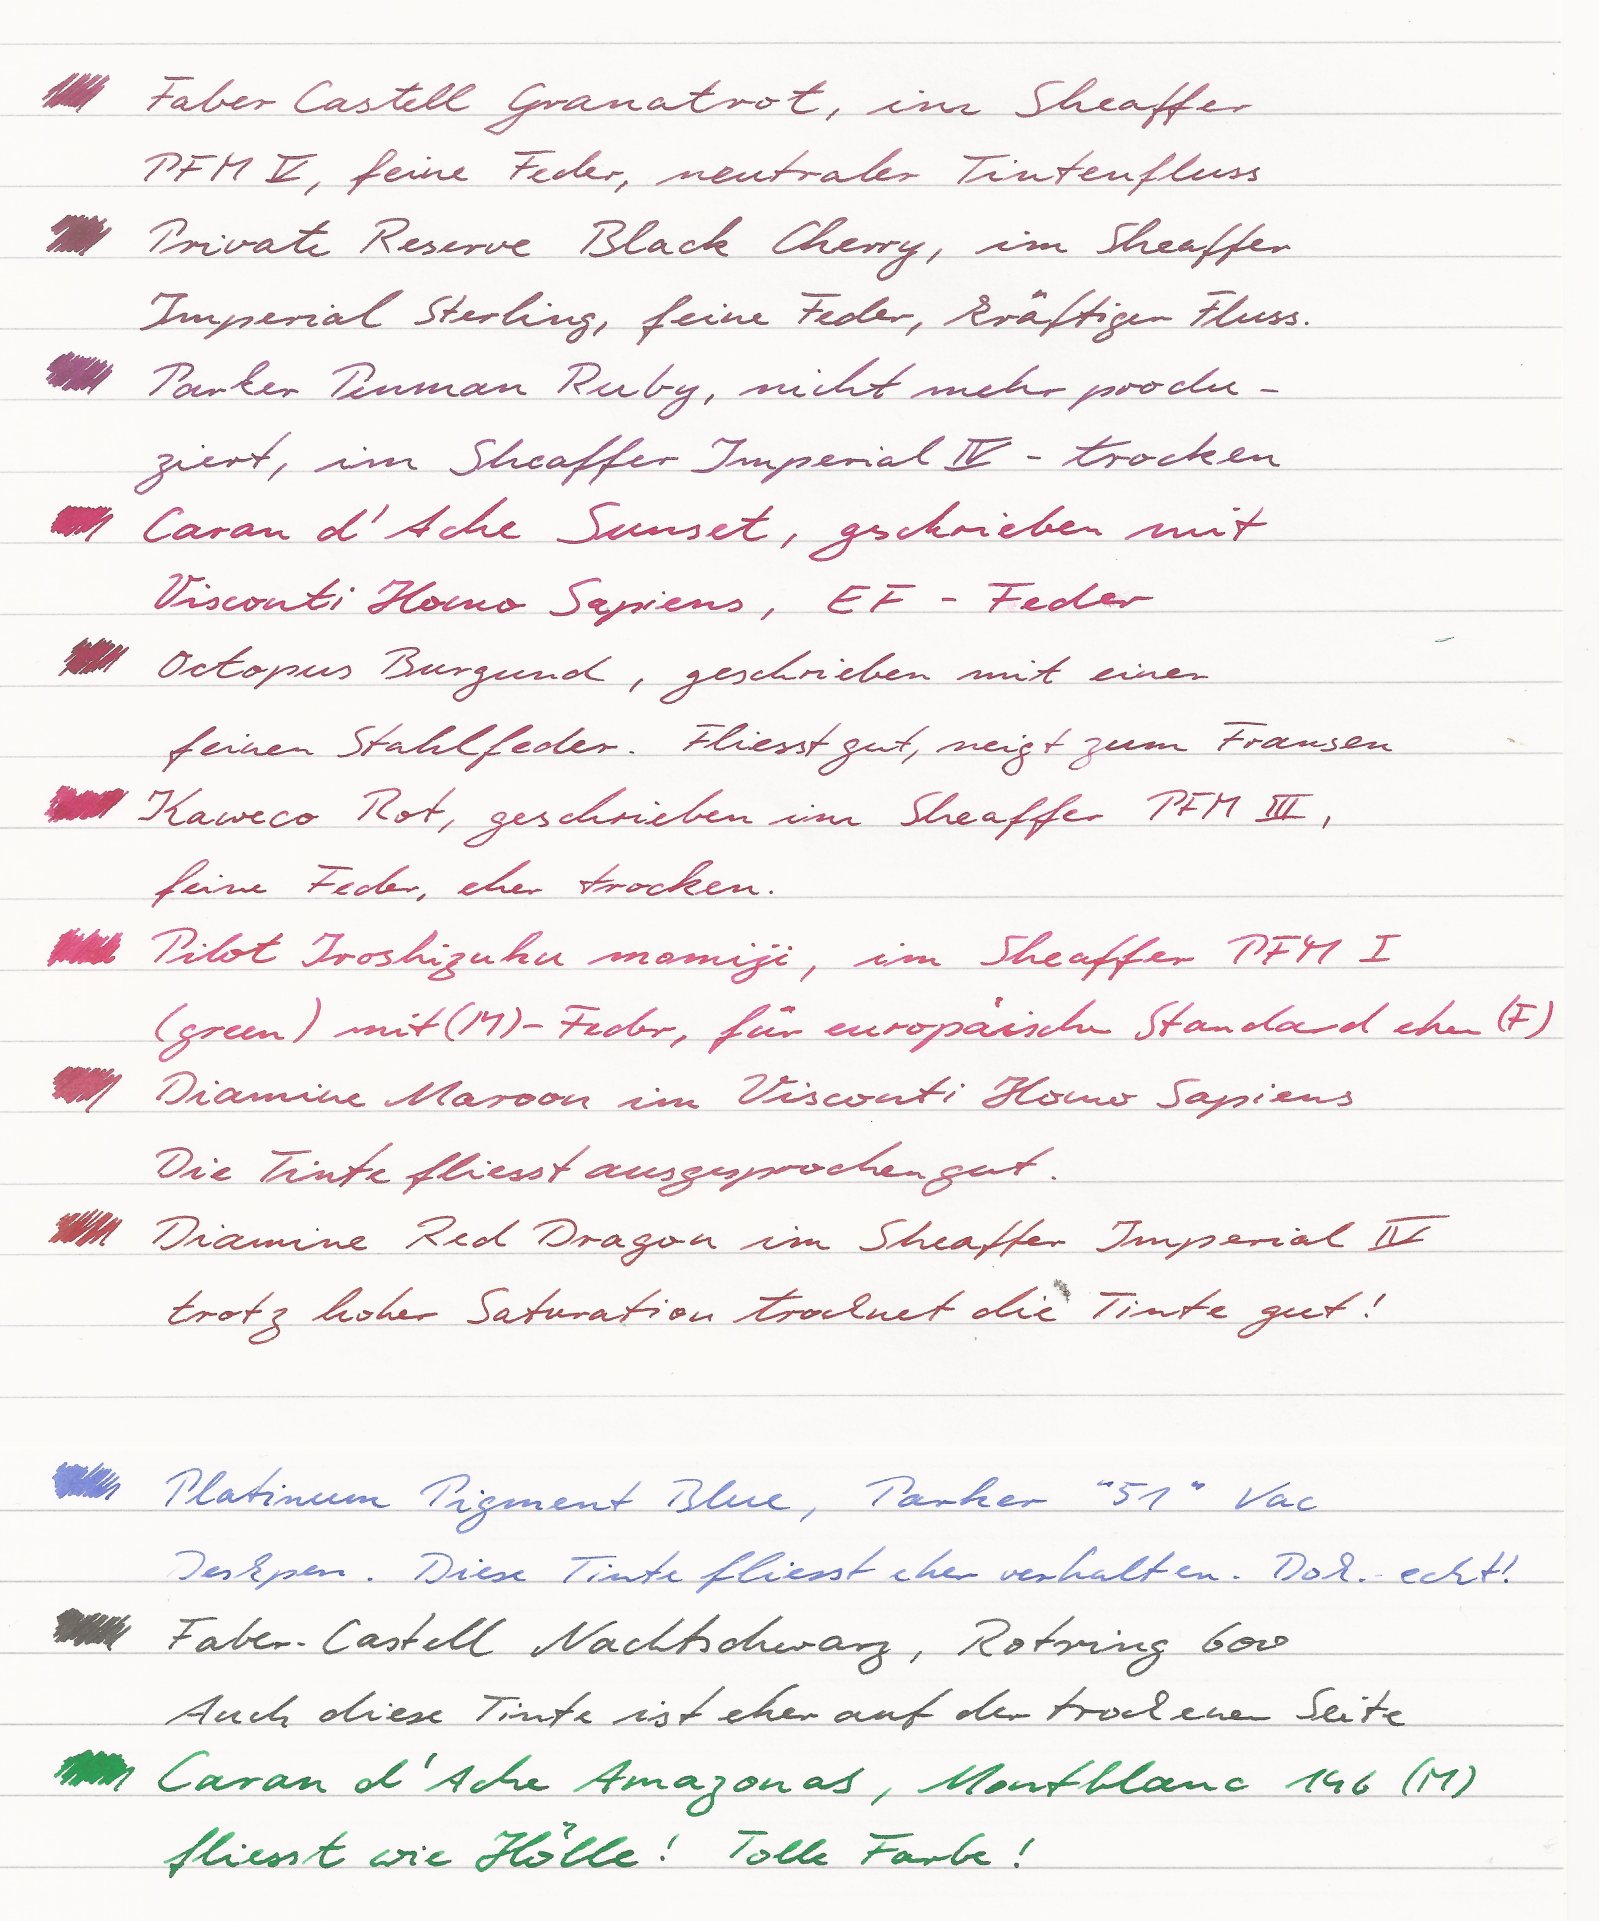 Faber Castell Granatrot, im Sheaffer
PFM V, feine Feder, neutraler Tintenfluss
Private Reserve Black Cherry, im Sheaffer
Imperial Sterling, feine Feder, kräftiger Fluss.
Parker Penman Ruby, nicht mehr produ-
ziert, im Sheaffer Imperial IV - trocken
Caran d'Ache Sunset, geschrieben mit
Visconti Homo Sapiens, EF - Feder
Octopus Burgund, geschrieben mit einer
feinen Stahlfeder. Fliesst gut, neigt zum Fransen
Kaweco Rot, geschrieben im Sheaffer PFM III,
feine Feder, eher trocken.
Pilot Iroshizuku momiji, im Sheaffer PFM I
(green) mit (M)-Feder, für europäische Standard eher (F)
Diamine Maroon im Visconti Homo Sapiens
Die Tinte fliesst ausgesprochen gut.
Diamine Red Dragon im Sheaffer Imperial IV
trotz hoher Saturation trocknet die Tinte gut!
Platinum Pigment Blue, Parker "51" Vac
Deskpen. Diese Tinte fliesst eher verhalten. Dok.-echt!
Faber-Castell Nachtschwarz, Rotring 600
Auch diese Tinte ist eher auf der trockenen Seite
Caran d'Ache Amazonas, Montblanc 146 (M)
fliesst wie Hölle! Tolle Farbe!